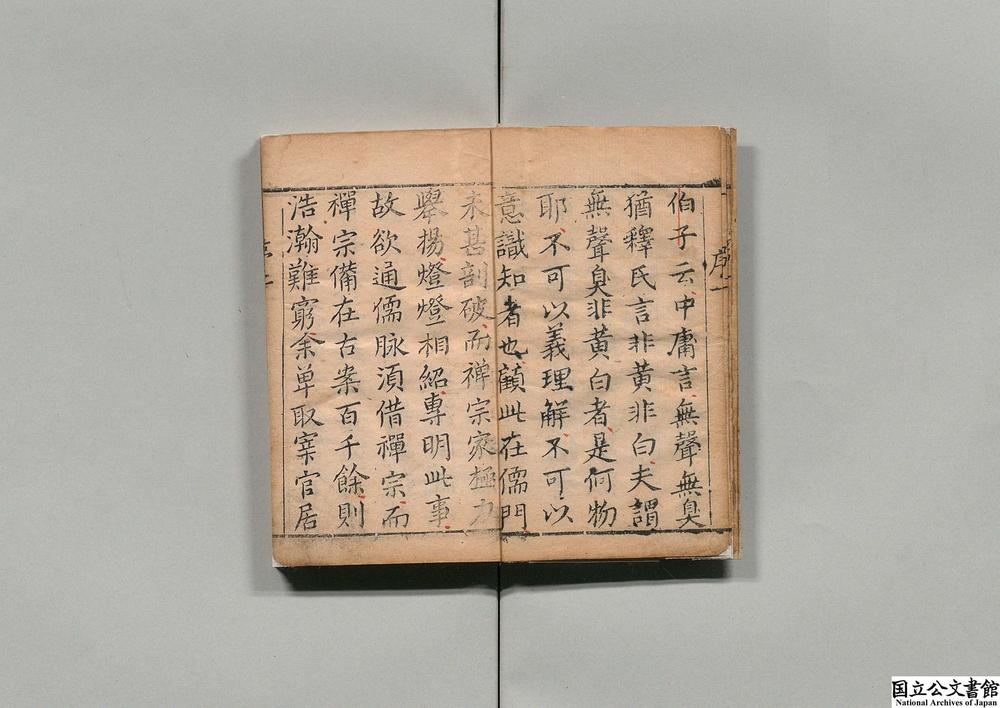 序一
伯子云中庸言無聲無臭
猶釋氏言非黄非白夫謂
無聲臭非黄白者是何物
耶不可以義理解不可以
意識知者也顧此在儒門
未甚剖破而禅宗家極力
舉揚燈燈相紹專明此事
故欲通儒脉須借禪宗而
禪宗備在古案百千餘則
浩瀚難窮余单取寀官居
国立公文書館
National Archives of Japan